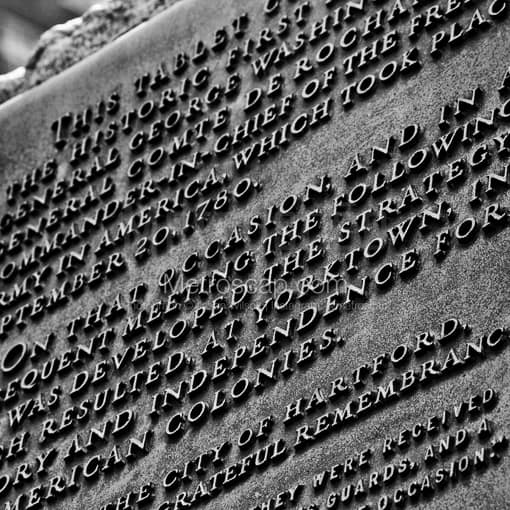 THIS TABLET C
THE HISTORIC FIRST
GENERAL GEORGE WASHING
GENERAL COMTE DE ROCHAM
COMMANDER-IN-CHIEF OF THE FRE
ARMY IN AMERICA, WHICH TOOK PLAC
SEPTEMBER 20, 1780.
ON THAT OCCASION, AND IN A
SEQUENT MEETING THE FOLLOWING
WAS DEVELOPED THE STRATEGY
CH RESULTED, AT YORKTOWN, IN
ORY AND INDEPENDENCE FOR
MERICAN COLONIES.
THE CITY OF HARTFORD,
GRATEFUL REMEMBRANC
HEY WERE RECEIVED
S GUARDS, AND A
OCCASION.
Metroscap.com